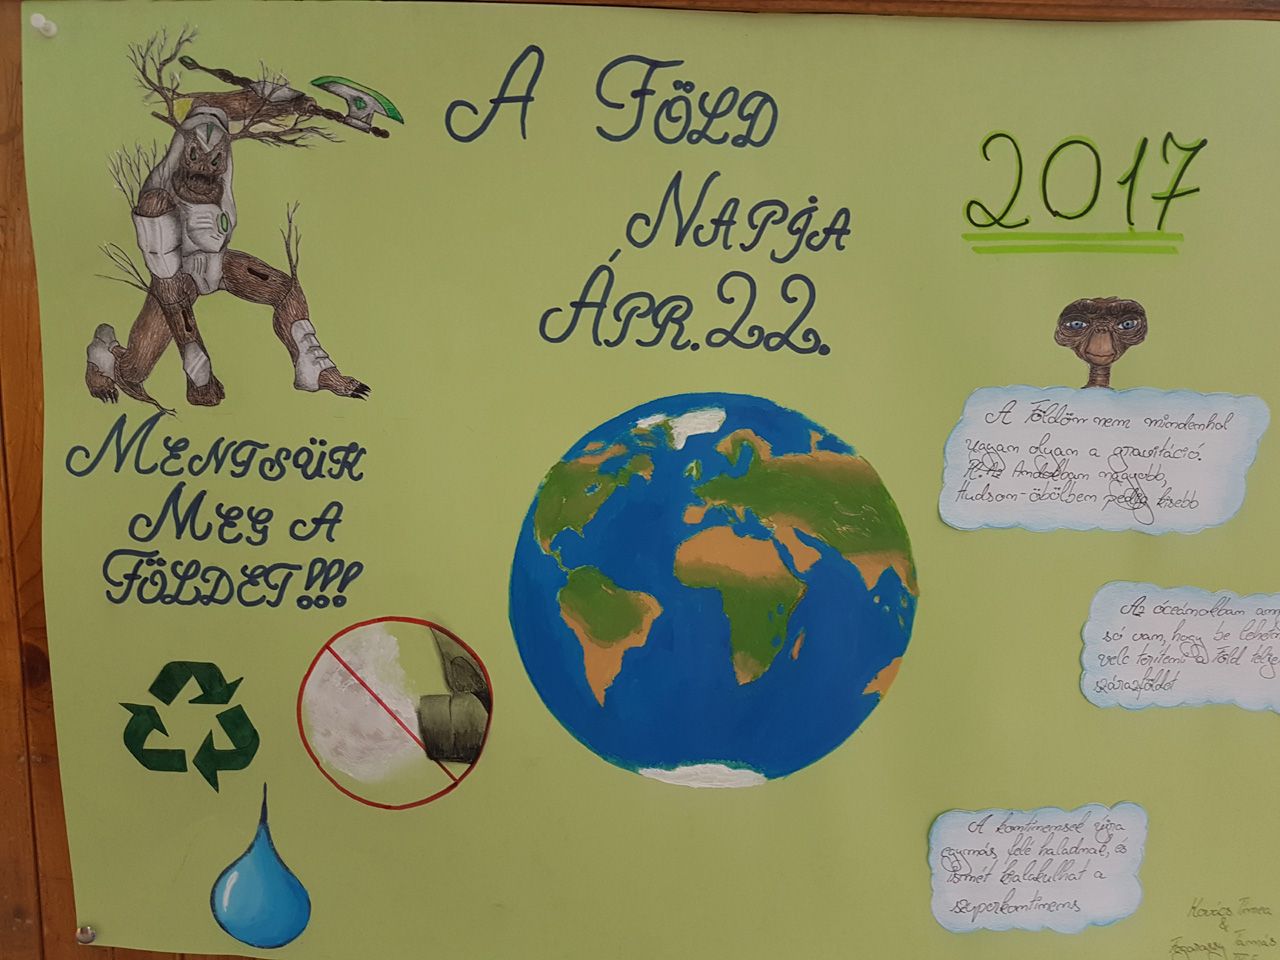 A FÖLD
NAPJA
ÁPR. 22.
2017
MENTSÜK
MEG A
FÖLDET!!!
A Földön nem mindenhol
ugyan olyan a gravitáció.
Andokban nagyobb,
Hudson-öbölben pedig kisebb
Az óceánokban ann
só van, hogy be lehet
vele teríteni a Föld teljes
szárazföldet
A kontinensek újra
egymás felé haladnak, és
ismét kialakulhat a
szuperkontinens
Kovács Tímea
&
Tamás